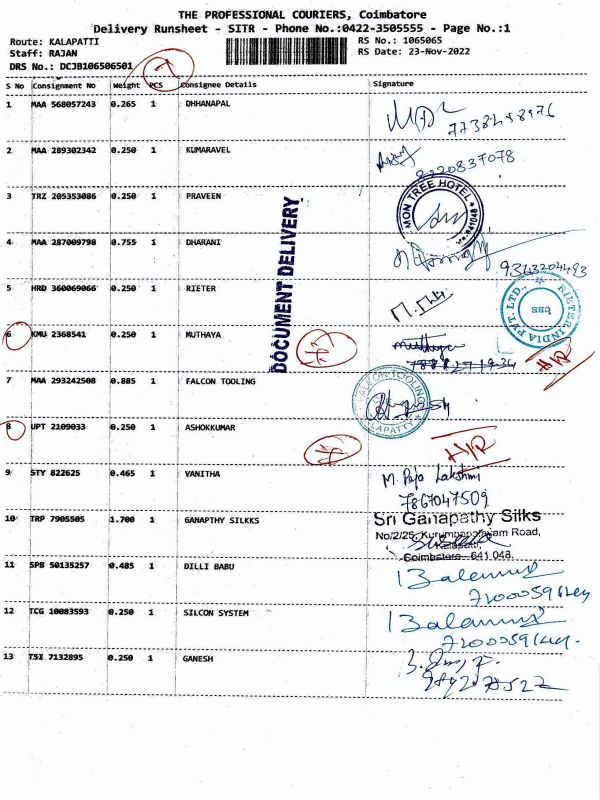 THE PROFESSIONAL COURIERS, Coimbatore
Delivery Runsheet - SITR - Phone No.:0422-3505555 - Page No.:1
Route: KALAPATTI
RS No.: 1065065
Staff: RAJAN
RS Date: 23-Nov-2022
DRS No.: DCJB106506501
S No Consignment No Weight PCS Consignee Details Signature
1 MAA 568057243 0.265 1 DHHANAPAL
2 MAA 289302342 0.250 1 KUMARAVEL
8220837078
3 TRZ 205353086 0.250 1 PRAVEEN
MON TREE HOTEL
DOCUMENT DELIVERY
4 MAA 287009798 0.755 1 DHARANI
9363204493
5 HRD 360069066 0.250 1 RIETER
RIETER INDIA PVT. LTD.,
CBE
6 KMU 2368541 0.250 1 MUTHAYA
H/R
7 MAA 293242508 0.885 1 FALCON TOOLING
FALCON TOOLING
KALAPATTY
8 UPT 2109033 0.250 1 ASHOKKUMAR
H/R
9 STY 822625 0.465 1 VANITHA
Lakshmi
7867047509
10 TRP 7905505 1.700 1 GANAPTHY SILKKS
Sri Ganapathy Silks
No/2/25, Kurumpapalayam Road,
Kalapatti,
Coimbatore - 641 048.
11 SPB 50135257 0.485 1 DILLI BABU
12 TCG 10083593 0.250 1 SILCON SYSTEM
13 TSI 7132895 0.250 1 GANESH